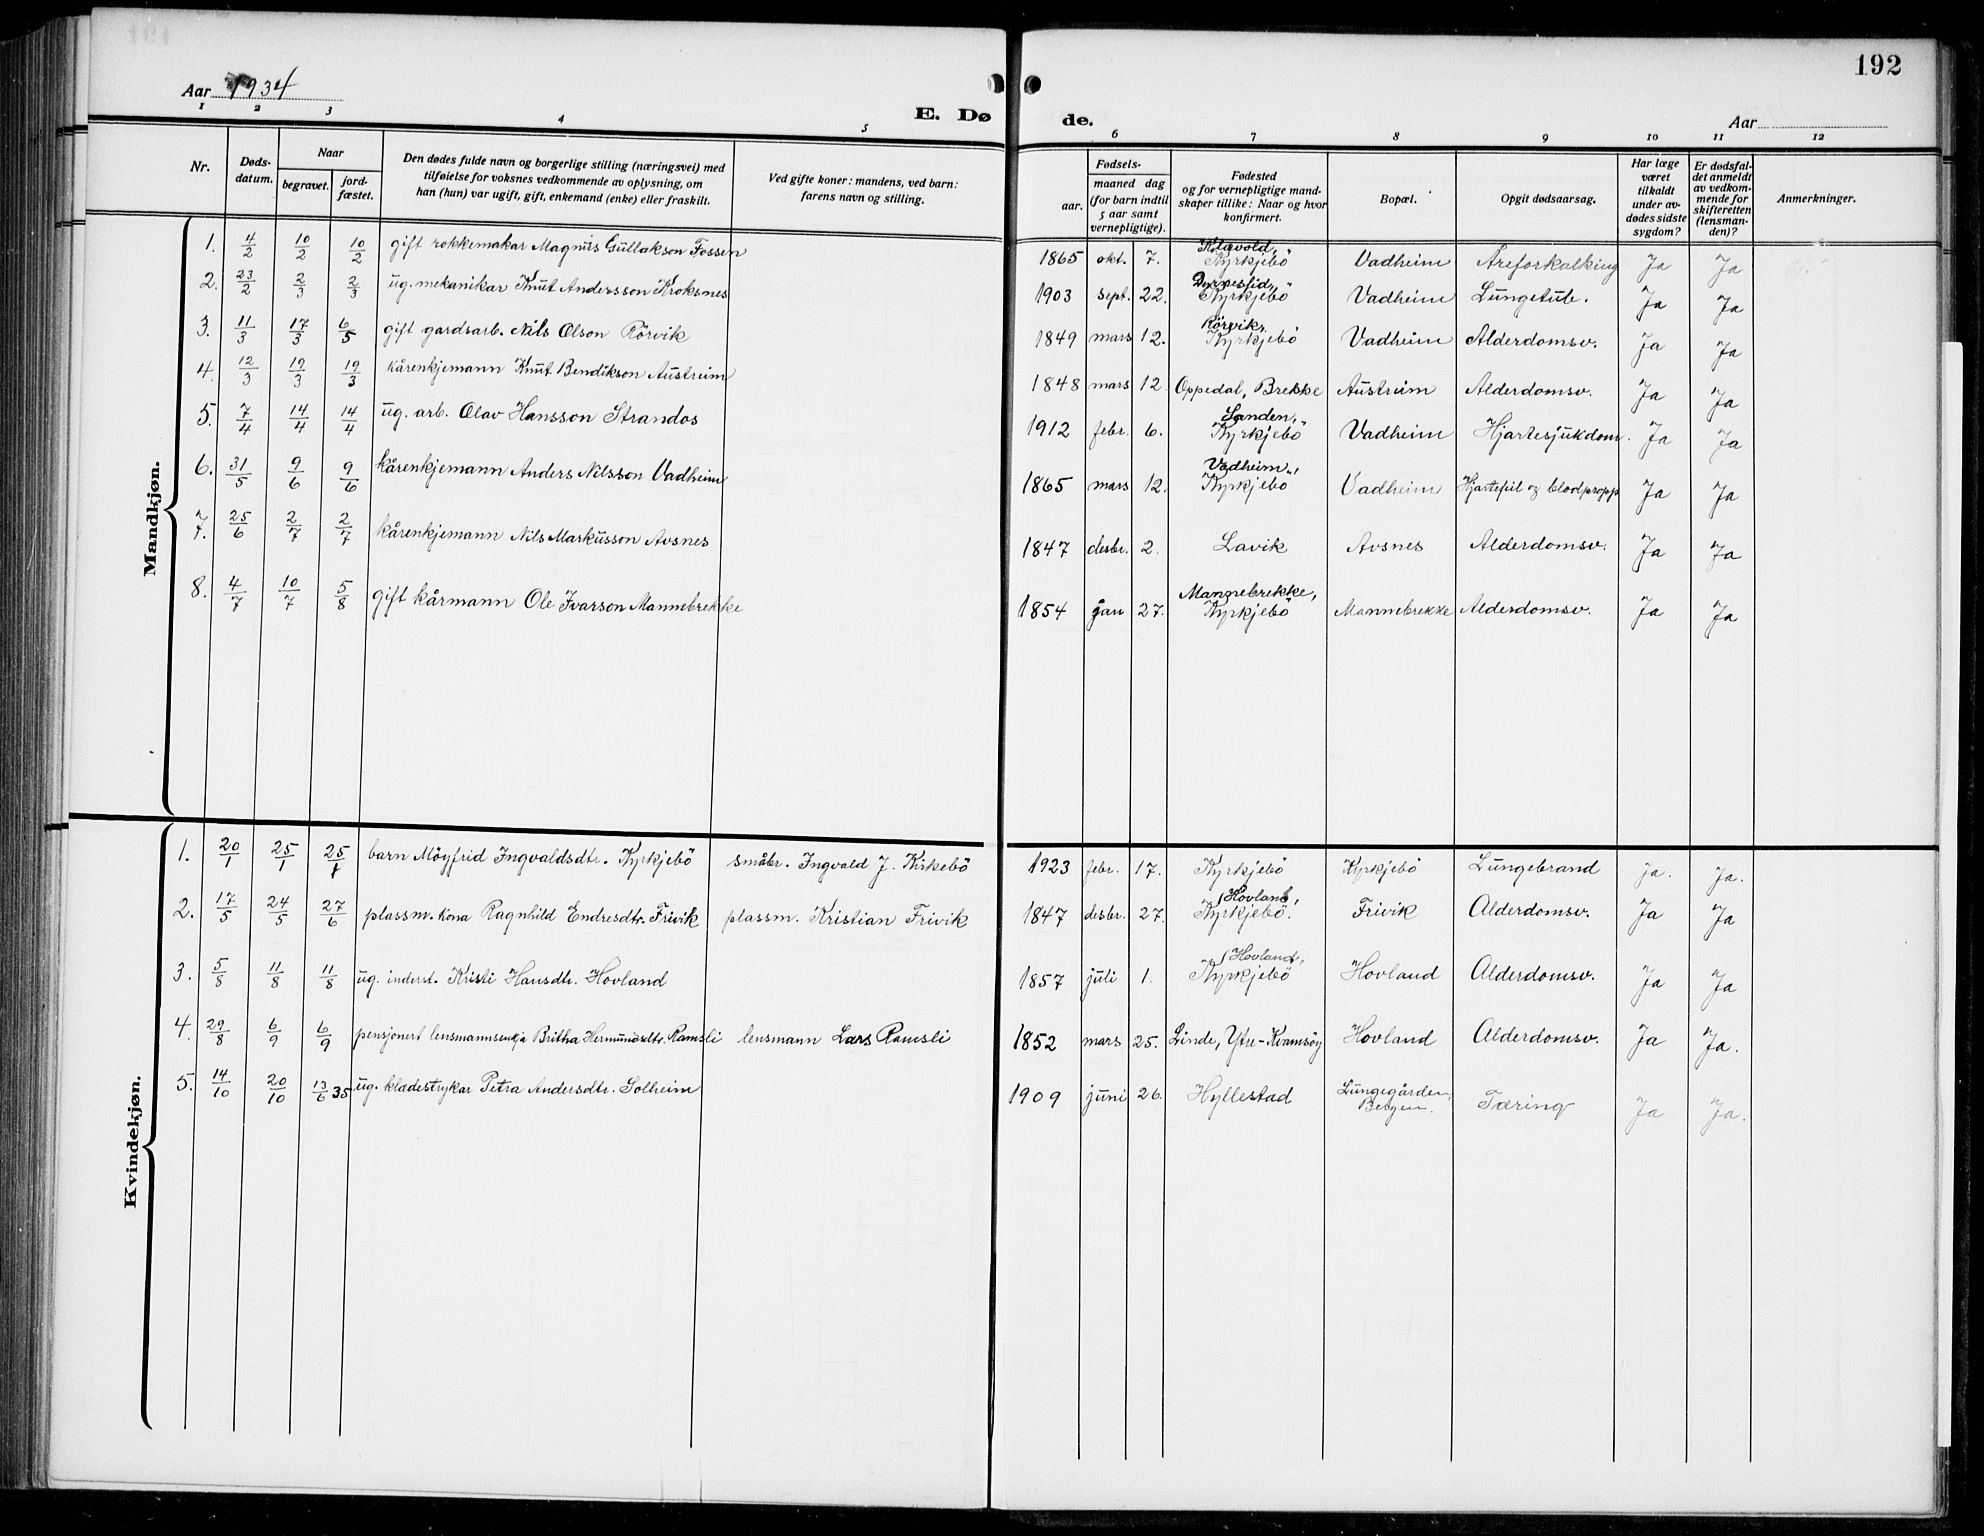 192
Aar 1934
E. Dø de.
Aar
1 2 3 4 5 6 7 8 9 10 11 12
Nr.
Døds-
datum.
Naar
begravet.
jord-
fæstet.
Den dødes fulde navn og borgerlige stilling (næringsvei) med
tilføielse for voksnes vedkommende av oplysning, om
han (hun) var ugift, gift, enkemand (enke) eller fraskilt.
Ved gifte koner: mandens, ved barn:
farens navn og stilling.
Fødsels-
aar.
maaned dag
(for barn indtil
5 aar samt
vernepligtige).
Fødested
og for vernepligtige mand-
skaper tillike: Naar og hvor
konfirmert.
Bopæl.
Opgit dødsaarsag.
Har læge
været
tilkaldt
under av-
dødes sidste
sygdom?
Er dødsfal-
det anmeldt
av vedkom-
mende for
skifteretten
(lensman-
den)?
Anmerkninger.
Mandkjøn.
1. 4/2 10/2 10/2 gift rokkemakar Magnus Gullakson Fossen 1865 okt. 7. Kyrkjebö Vadheim Åreforkalking Ja Ja
2. 23/2 2/3 2/3 ug. mekanikar Knut Andersson Kroksnes 1903 sept. 22. Kyrkjebö Vadheim Lungetub. Ja Ja
3. 11/3 17/3 6/5 gift gardsarb. Nils Olson Rörvik 1849 mars 12. Rörvik, Kyrkjebö Vadheim Alderdomsv. ja Ja
4. 12/3 19/3 19/3 kårenkjemann Knut Bendikson Austreim 1848 mars 12 Oppedal, Brekke Austreim Alderdomsv. Ja Ja
5. 7/4 14/4 14/4 ug. arb. Olav Hansson Strandos 1912 febr. 6. Sanden, Kyrkjebö Vadheim Hjartesjukdom. Ja Ja
6. 31/5 9/6 9/6 kårenkjemann Anders Nilsson Vadheim 1865 mars 12. Vadheim, Kyrkjebö Vadheim Hjartefeil og blodpropp Ja Ja
7. 25/6 2/7 2/7 kårenkjemann Nils Markusson Avsnes 1847 desbr. 2. Lavik Avsnes Alderdomsv. Ja Ja
8. 4/7 10/7 5/8 gift kårmann Ole Ivarson Mannebrekke 1854 jan 27. Mannebrekke, Kyrkjebö Mannebrekke Alderdomsv. Ja Ja
Kvindekjøn.
1. 20/1 25/1 25/1 barn Möyfrid Ingvaldsdtr. Kyrkjebö småbr. Ingvald J. Kirkebö 1923 febr. 17. Kyrkjebö Kyrkjebö Lungebrand ja. Ja.
2. 17/5 24/5 27/6 plassm. kona Ragnhild Endresdtr. Frivik plassm. Kristian Frivik 1847 desbr. 27. Hovland, Kyrkjebö. Frivik Alderdomsv. Ja Ja
3. 5/8 11/8 11/8 ug. inderst. Kristi Hansdtr. Hovland 1857 juli 1. Hovland, Kyrkjebö Hovland Alderdomsv. Ja Ja
4. 29/8 6/9 6/9 pensjonert lensmannsenkja Britha Hermundsdtr. Ramsli lensmann Lars Ramsli 1852 mars 25. Linde, Ytre-Kvamsöy Hovland Alderdomsv. Ja Ja.
5. 14/10 20/10 13/6 35 ug. klædestrykar Petra Andersdtr. Solheim 1909 juni 26. Hyllestad Lungegården, Bergen. Tæring Ja Ja.